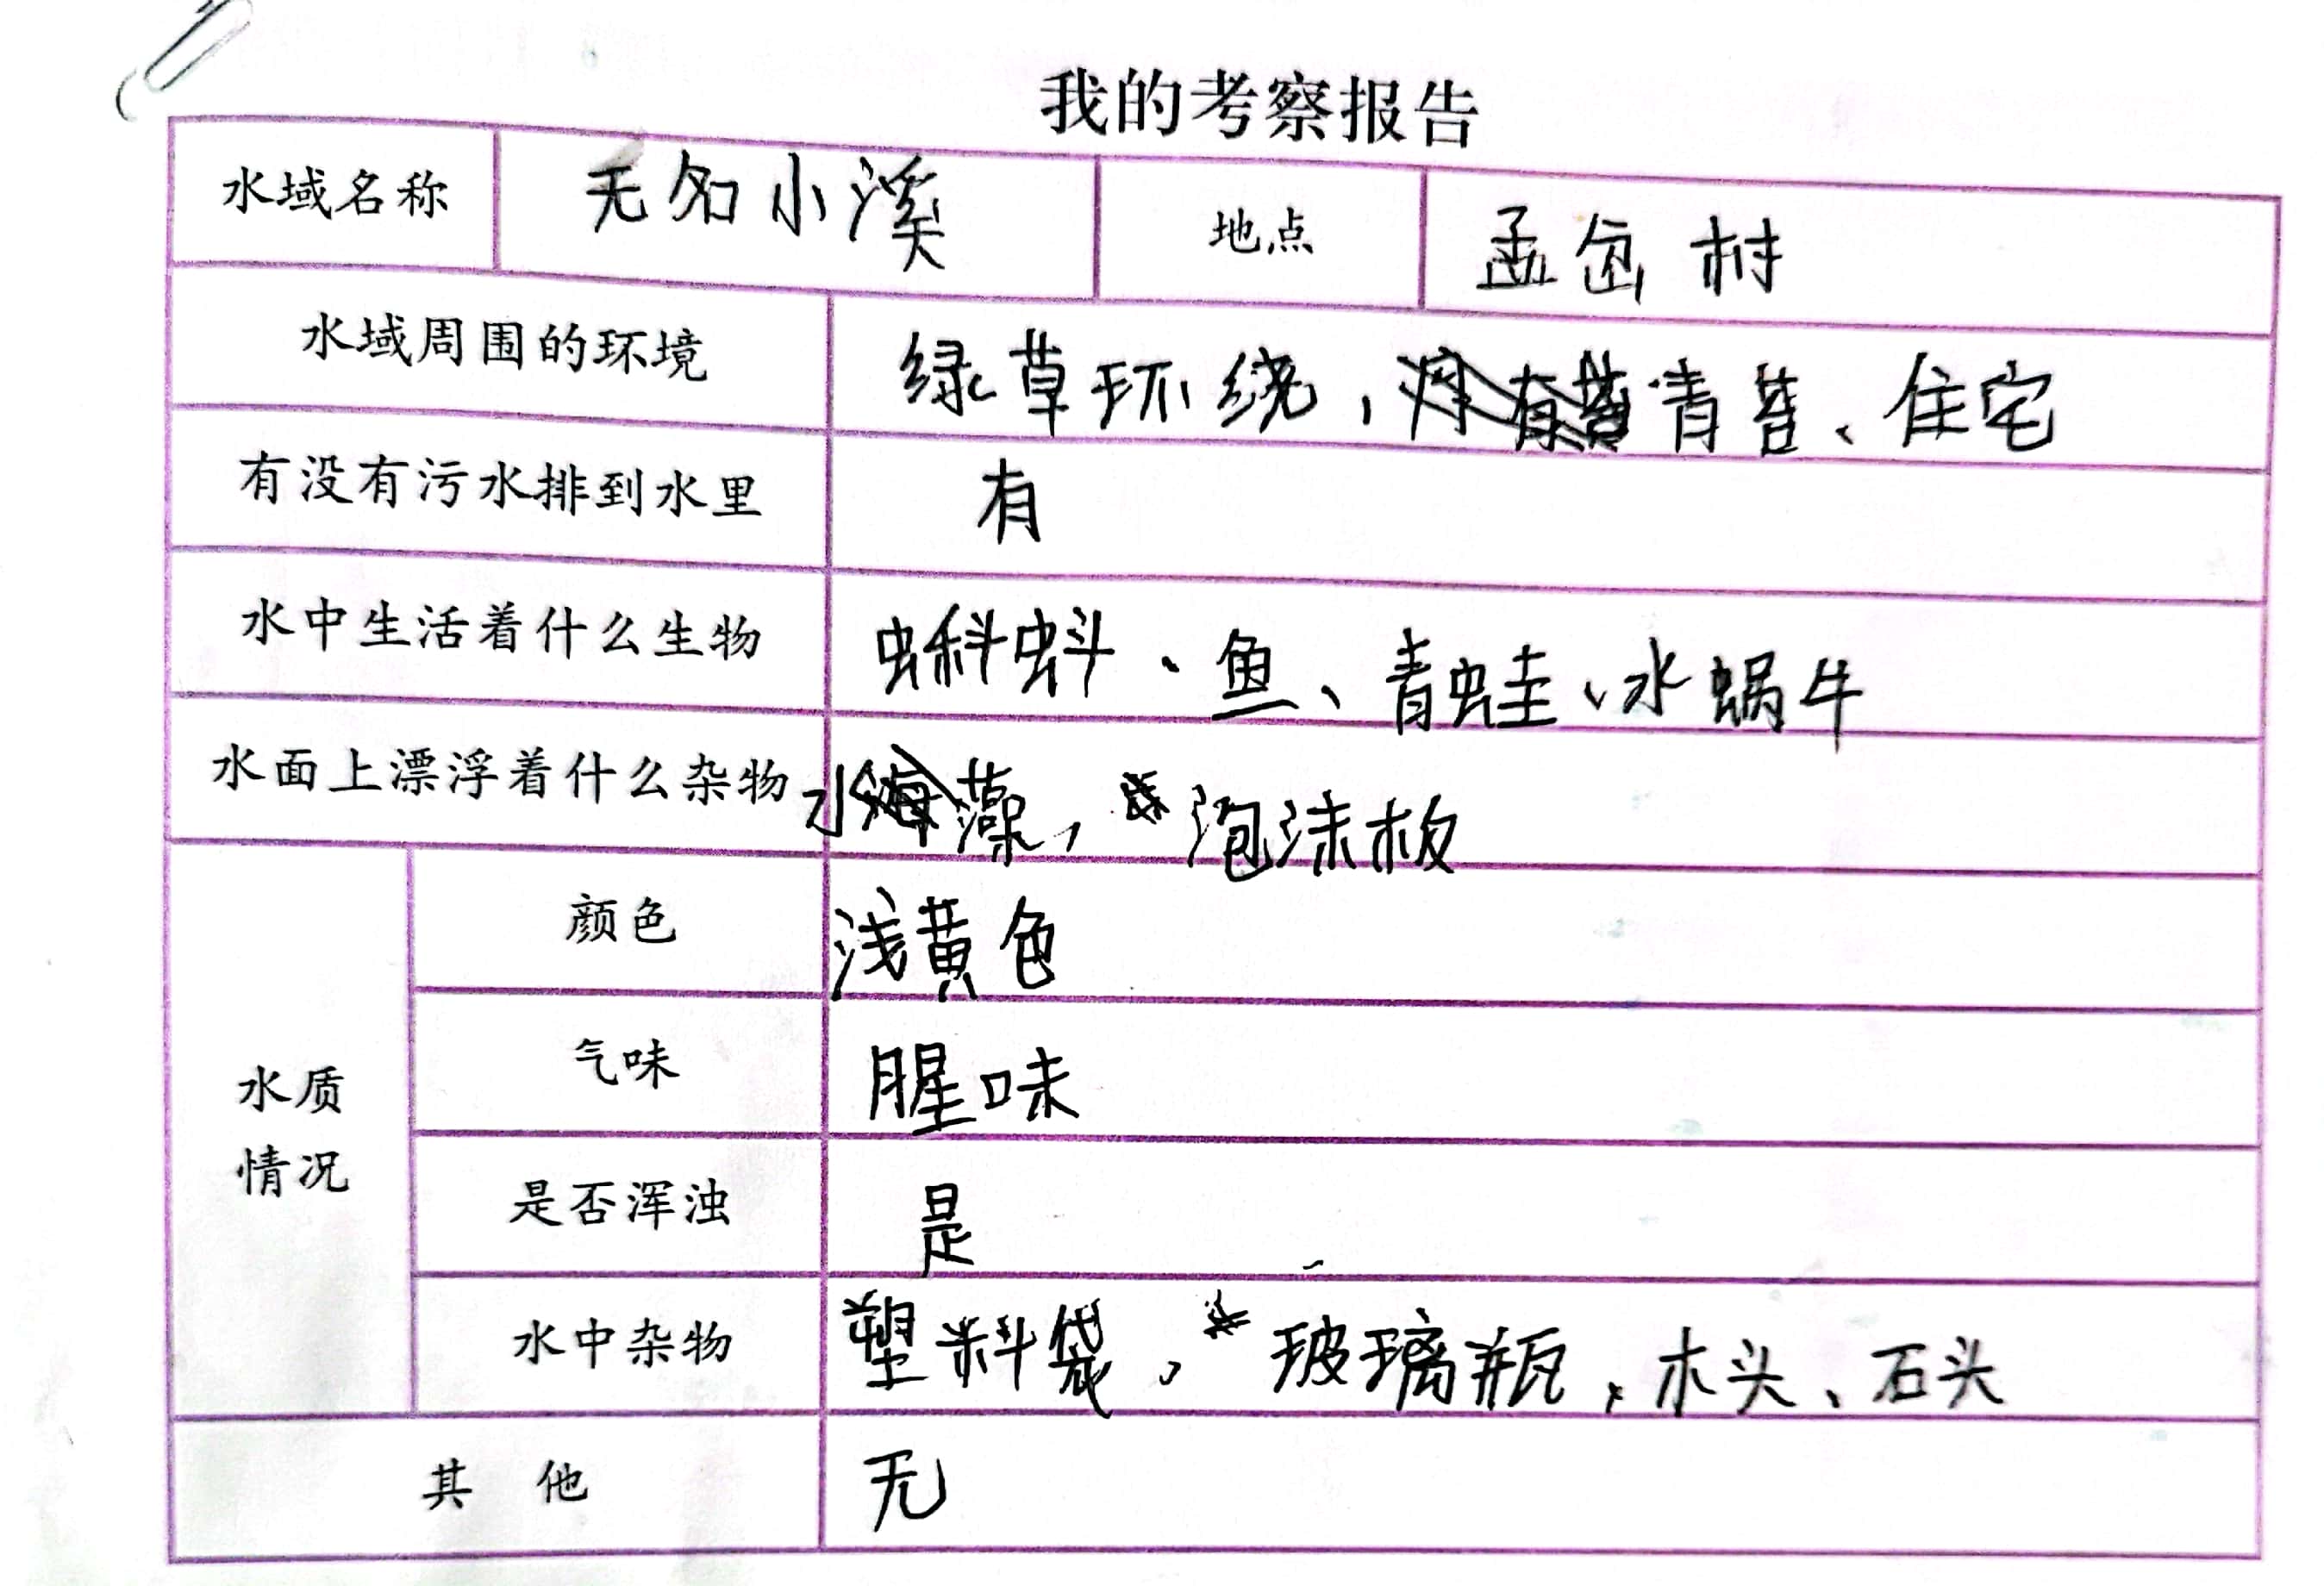 我的考察报告
水域名称 无名小溪 地点 孟岙村
水域周围的环境 绿草环绕，青苔、住宅
有没有污水排到水里 有
水中生活着什么生物 蝌蚪、鱼、青蛙、水蜗牛
水面上漂浮着什么杂物 水藻，泡沫板
水质情况
颜色 浅黄色
气味 腥味
是否浑浊 是
水中杂物 塑料袋，玻璃瓶、木头、石头
其他 无